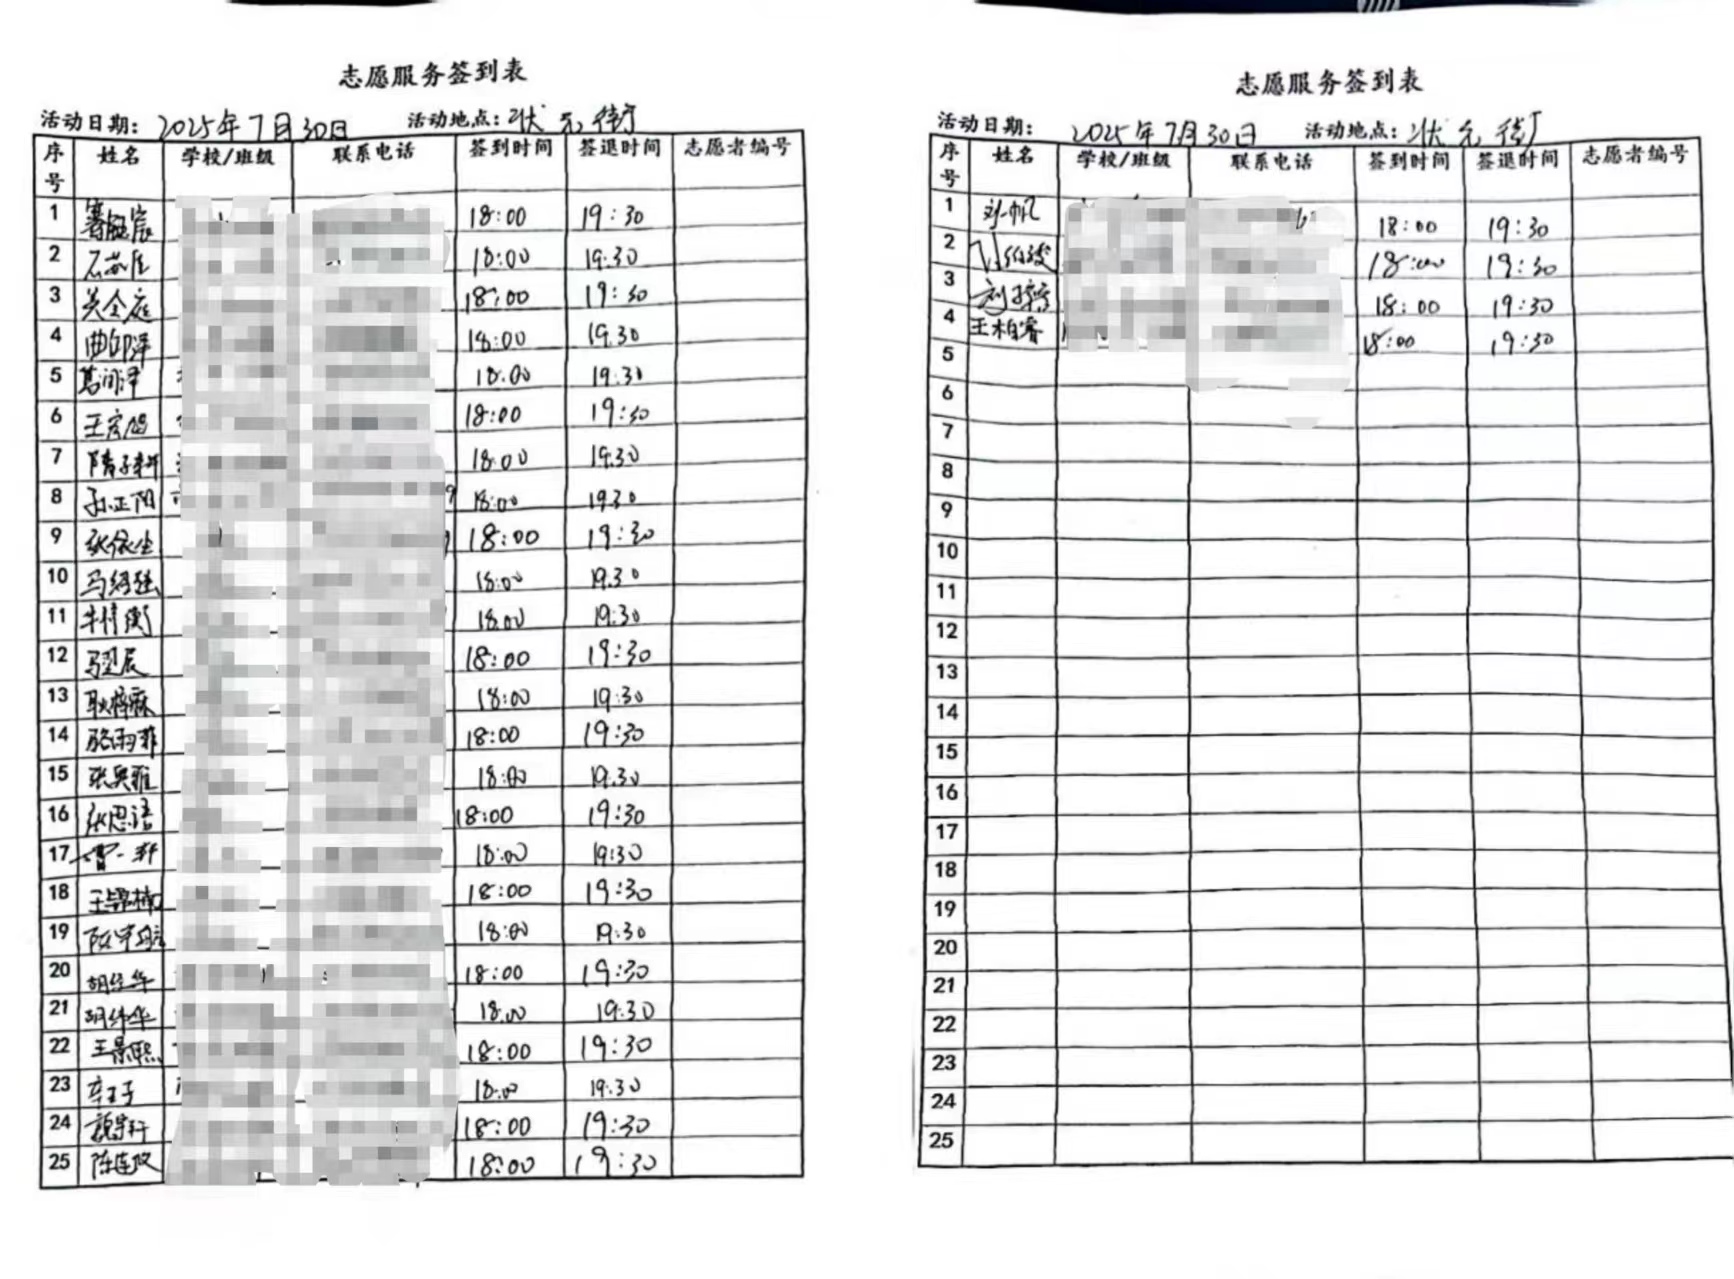 志愿服务签到表
活动日期: 2025年7月30日 活动地点: 状元街
序号 姓名 学校/班级 联系电话 签到时间 签退时间 志愿者编号
1 18:00 19:30
2 石苏佳 18:00 19:30
3 18:00 19:30
4 18:00 19.30
5 18:00 19:30
6 王宏旭 18:00 19:30
7 隋子轩 18:00 19:30
8 孙正阳 18:00 19:30
9 18:00 19:30
10 18:00 19.30
11 18:00 19:30
12 18:00 19:30
13 耿梓霖 18:00 19:30
14 骆雨菲 18:00 19:30
15 18:00 19.30
16 张思语 18:00 19:30
17 18:00 19:30
18 18:00 19:30
19 18:00 19:30
20 18:00 19:30
21 18:00 19:30
22 王景熙 18:00 19:30
23 18:00 19:30
24 18:00 19:30
25 18:00 19:30
志愿服务签到表
活动日期: 2025年7月30日 活动地点: 状元街
序号 姓名 学校/班级 联系电话 签到时间 签退时间 志愿者编号
1 刘一帆 18:00 19:30
2 18:00 19:30
3 18:00 19:30
4 王柏睿 18:00 19:30
5
6
7
8
9
10
11
12
13
14
15
16
17
18
19
20
21
22
23
24
25